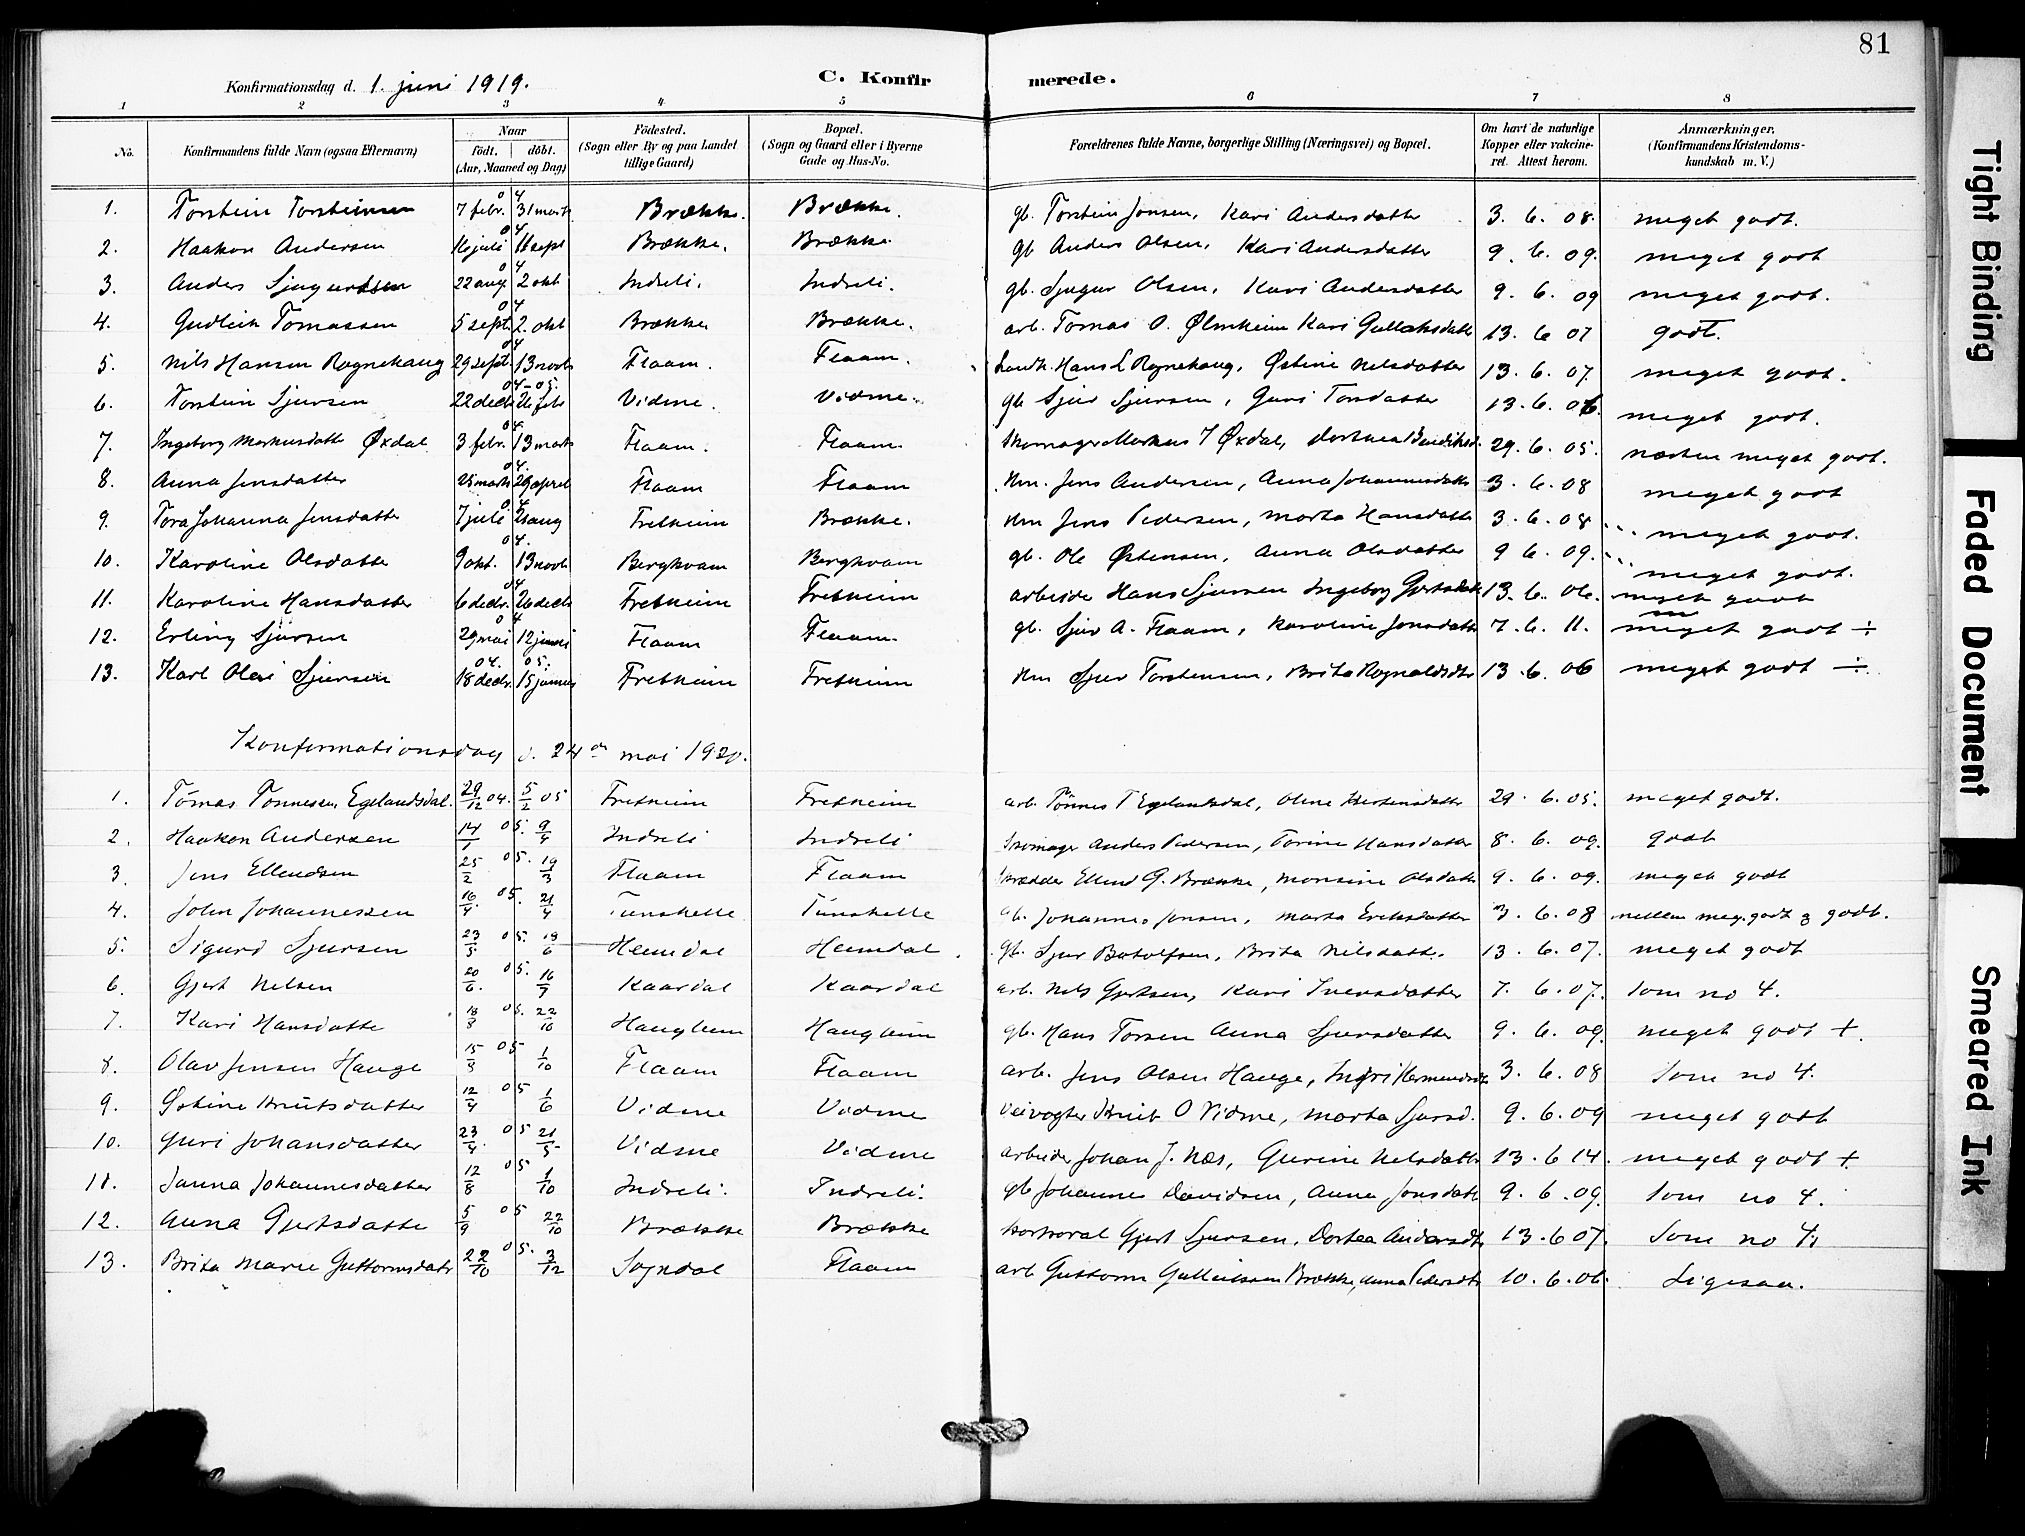 81
Konfirmationsdag d. 1. juni 1919. C. Konfir merede.
1 2 3 4 5 6 7 8
No. Konfirmandens fulde Navn (ogsaa Efternavn) Naar födt. döbt. (Aar, Maaned og Dag) Födested. (Sogn eller By og paa Landet tillige Gaard) Bopæl. (Sogn og Gaard eller i Byerne Gade og Hus-No. Forældrenes fulde Navne, borgerlige Stilling (Næringsvei) og Bopæl. Om havt de naturlige Kopper eller vakcineret. Attest herom. Anmærkninger. (Konfirmandens Kristendomskundskab m. V.)
1. Torstein Torsteinsen 7 febr. 04 31 mars Brække. Brække. gb. Torstein Jonsen, Kari Andersdatter 3. 6. 08. meget godt.
2. Haakon Andersen 16 juli 04 11 sept Brække. Brække. gb Anders Olsen, Kari Andersdatter 9. 6. 09. meget godt
3. Anders Sjugurdsen 22 aug 04 2 okt Indreli. Indreli. gb. Sjugur Olsen, Kari Andersdatter 9. 6. 09 meget godt.
4. Gudleik Tomassen 5 sept. 04 2. okt Brække Brække. arb. Tomas O. Ølmheim Kari Gullaksdatt 13. 6 07 godt.
5. Nils Hansen Rognehaug 29 sept. 04 13 novb Flaam. Flaam. Hans L Rognehaug, Østine Nilsdatter 13. 6. 07. meget godt.
6. Torstein Sjursen 22 decb 04-05. 26 feb Vidme. Vidme. gb Sjur Sjursen, Guri Torsdatter 13. 6. 06. meget godt.
7. Ingeborg Markusdatt Øxdal 3 febr. 04 13 mars Flaam. Flaam. Skomager Markus I Øxdal, Dorthea Bendiksd. 29. 6. 05. næsten meget godt.
8. Anna Jensdatter 25 mars 04. 29 april Flaam Flaam Hm. Jens Andersen, Anna Johannesdatt 3. 6. 08 meget godt
9. Tora Johanna Jensdatter 7 juli 04 21 aug Fretheim Brække. Hm Jens Pedersen, Marta Hansdatt 3. 6. 08 meget godt.
10. Karoline Olsdatter 9 okt. 04. 13 novb Berghvam Berghvam gb. Ole Østensen, Anna Olsdatter 9 6. 09. meget godt.
11. Karoline Hansdatter 6 decbr. 04 26 decb Fretheim Fretheim arbeider Hans Sjursen Ingeborg Gjertsdatt 13. 6. 06. meget godt
12. Erling Sjursen 29 mai 04 12 juni Flaam Flaam. gb. Sjur A. Flaam, Karoline Jonsdatt 7. 6. 11. meget godt ÷
13. Karl Olai Sjursen 18 decbr. 04. 05. 15 januar Fretheim Fretheim Hm Sjur Torstensen, Brita Rognaldsdtr 13. 6. 06 meget godt ÷.
Konfirmationsdag d. 24de mai 1920.
1. Tomas Tønnessen Egelandsdal. 29/12 04. 5/2 05 Fretheim Fretheim arb. Tönnes T Egelandsdal, Oline 29. 6. 05. meget godt.
2. Haakon Andersen 14/1 05. 9/4 Indreli Indreli Skomager Anders Pedersen, Torine Hansdatter 8. 6. 09. godt
3. Jens Ellendsen 25/2 05. 19/3 Flaam Flaam Skrædder Ellend G. Brække, Monsine Olsdatt 9. 6. 09. meget godt
4. John Johannessen 16/4 05. 21/4 Tunshelle Tunshelle gb. Johannes Jonsen, Marta Eriksdatter 3. 6. 08 mellem meg. godt og godt.
5. Sigurd Sjursen 23/5 05. 18/6 Heimdal Heimdal. gb. Sjur Botolfsen, Brita Nilsdatt. 13. 6. 07. meget godt
6. Gjert Nilsen 20/6. 05. 16/7 Kaardal Kaardal arb. Nils Gjertsen, Kari Iversdatter 7. 6. 07. Som no 4.
7. Kari Hansdatte 18/8 05. 22/10 Haugheim Haugheim gb. Hans Torsen Anna Sjursdatter 9. 6. 09. meget godt +.
8. Olav Jensen Hauge 15/8 05 1/10 Flaam Flaam arb. Jens Olsen Hauge, Ingri Hermundsdt 3. 6. 08 Som no 4.
9. Østine Knutsdatter 12/4 05 1/6 Vidme Vidme Veivogter Knut O Vidme, Marta Sjursd. 9. 6. 09 meget godt
10. Guri Johansdatter 23/4. 05 21/5 Vidme Vidme arbeider Johan J. Næs, Gurine Nilsdatt 13. 6 14. meget godt +
11. Janna Johannesdatter 12/8 05 1/10 Indreli. Indreli. gb Johannes Davidsen, Anna Jonsdatt 9. 6. 09. Som no 4.
12. Anna Gjertsdatte 5/9 05 22/10 Brække Brække Korporal Gjert Sjursen, Dortea Andersdt 13. 6 07. Som no 4.
13. Brita Marie Guttormsdatr 22/10 05. 3/12 Sogndal Flaam arb Guttorm Gulleiksen Brække, Anna Pedersdtr 10. 6. 06. Ligesaa.
Tight Binding
Faded Document
Smeared Ink